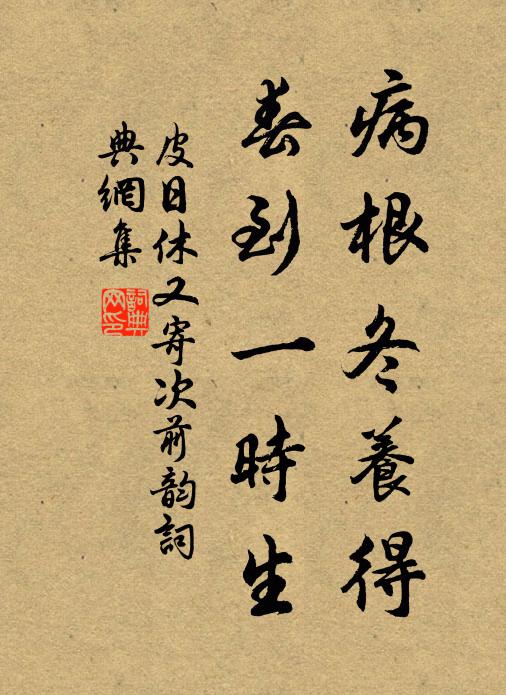 病根冬養得
春到一時生
皮日休又寄次前韵詞
典網集
詞典网印